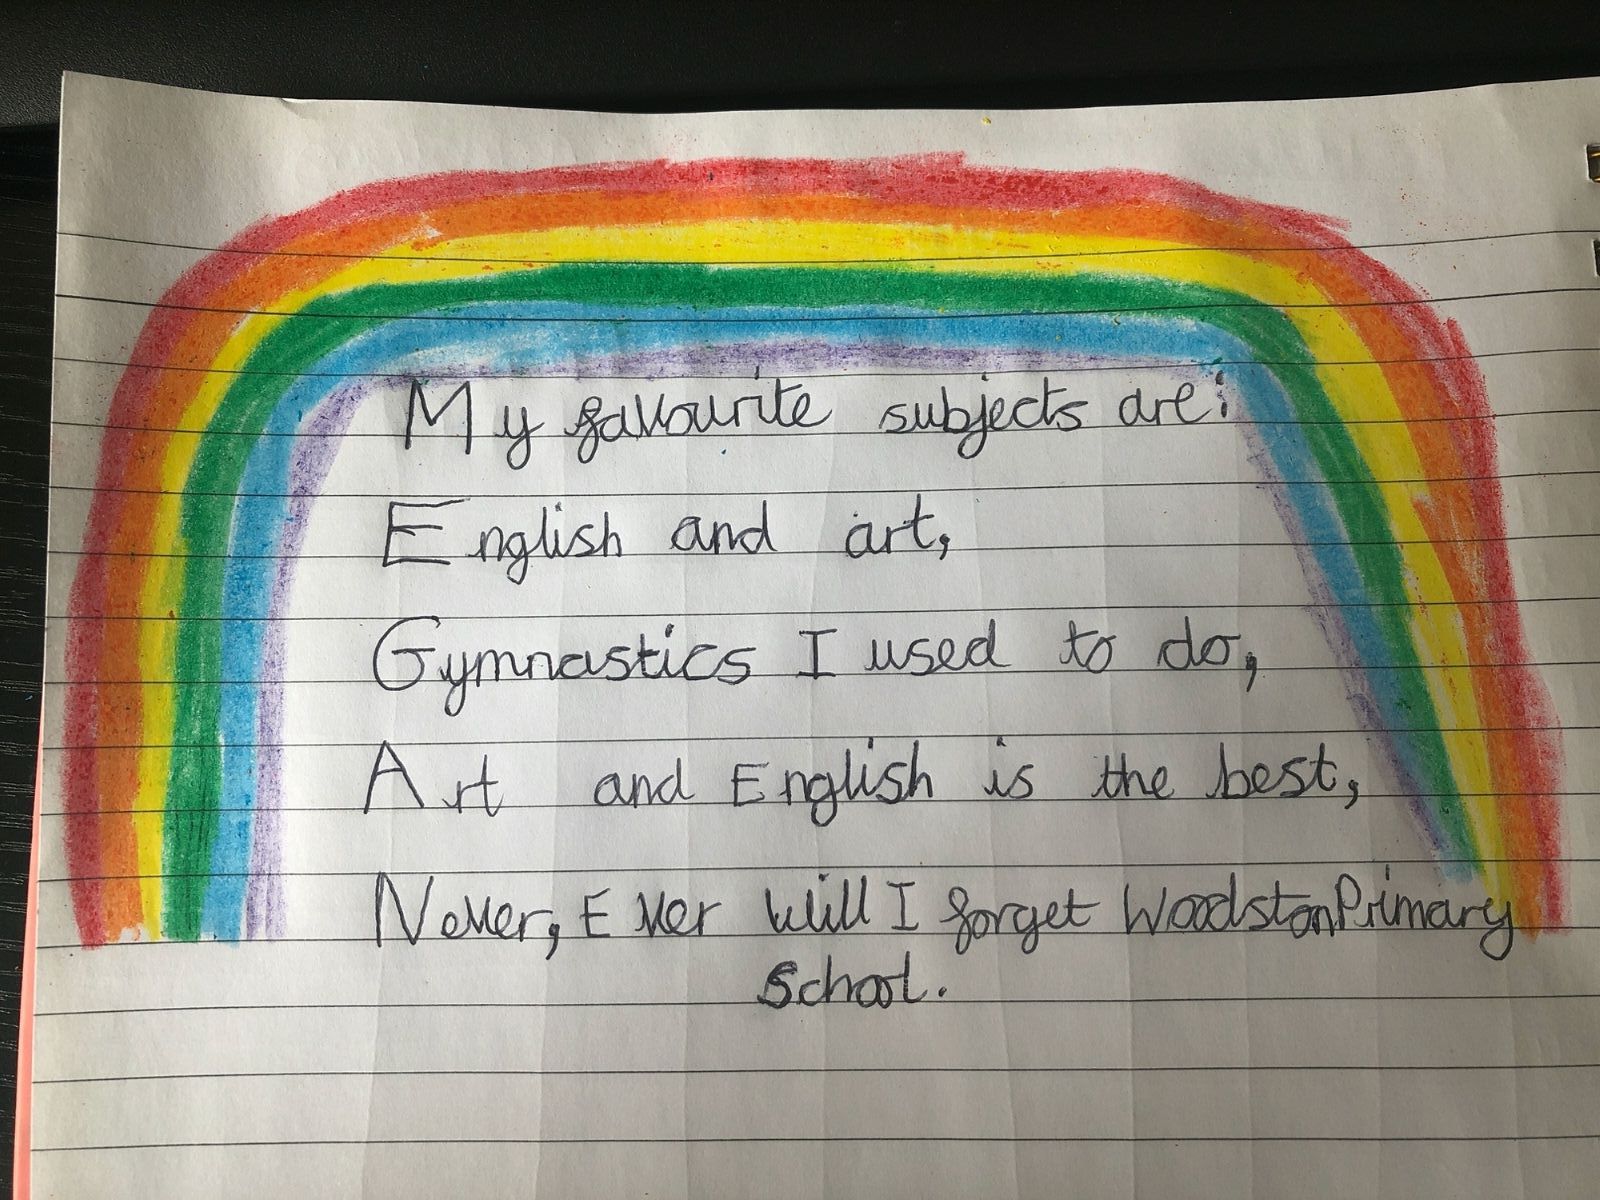 My favourite subjects are:
English and art,
Gymnastics I used to do,
Art and English is the best,
Never, Ever will I forget Woodston Primary
School.